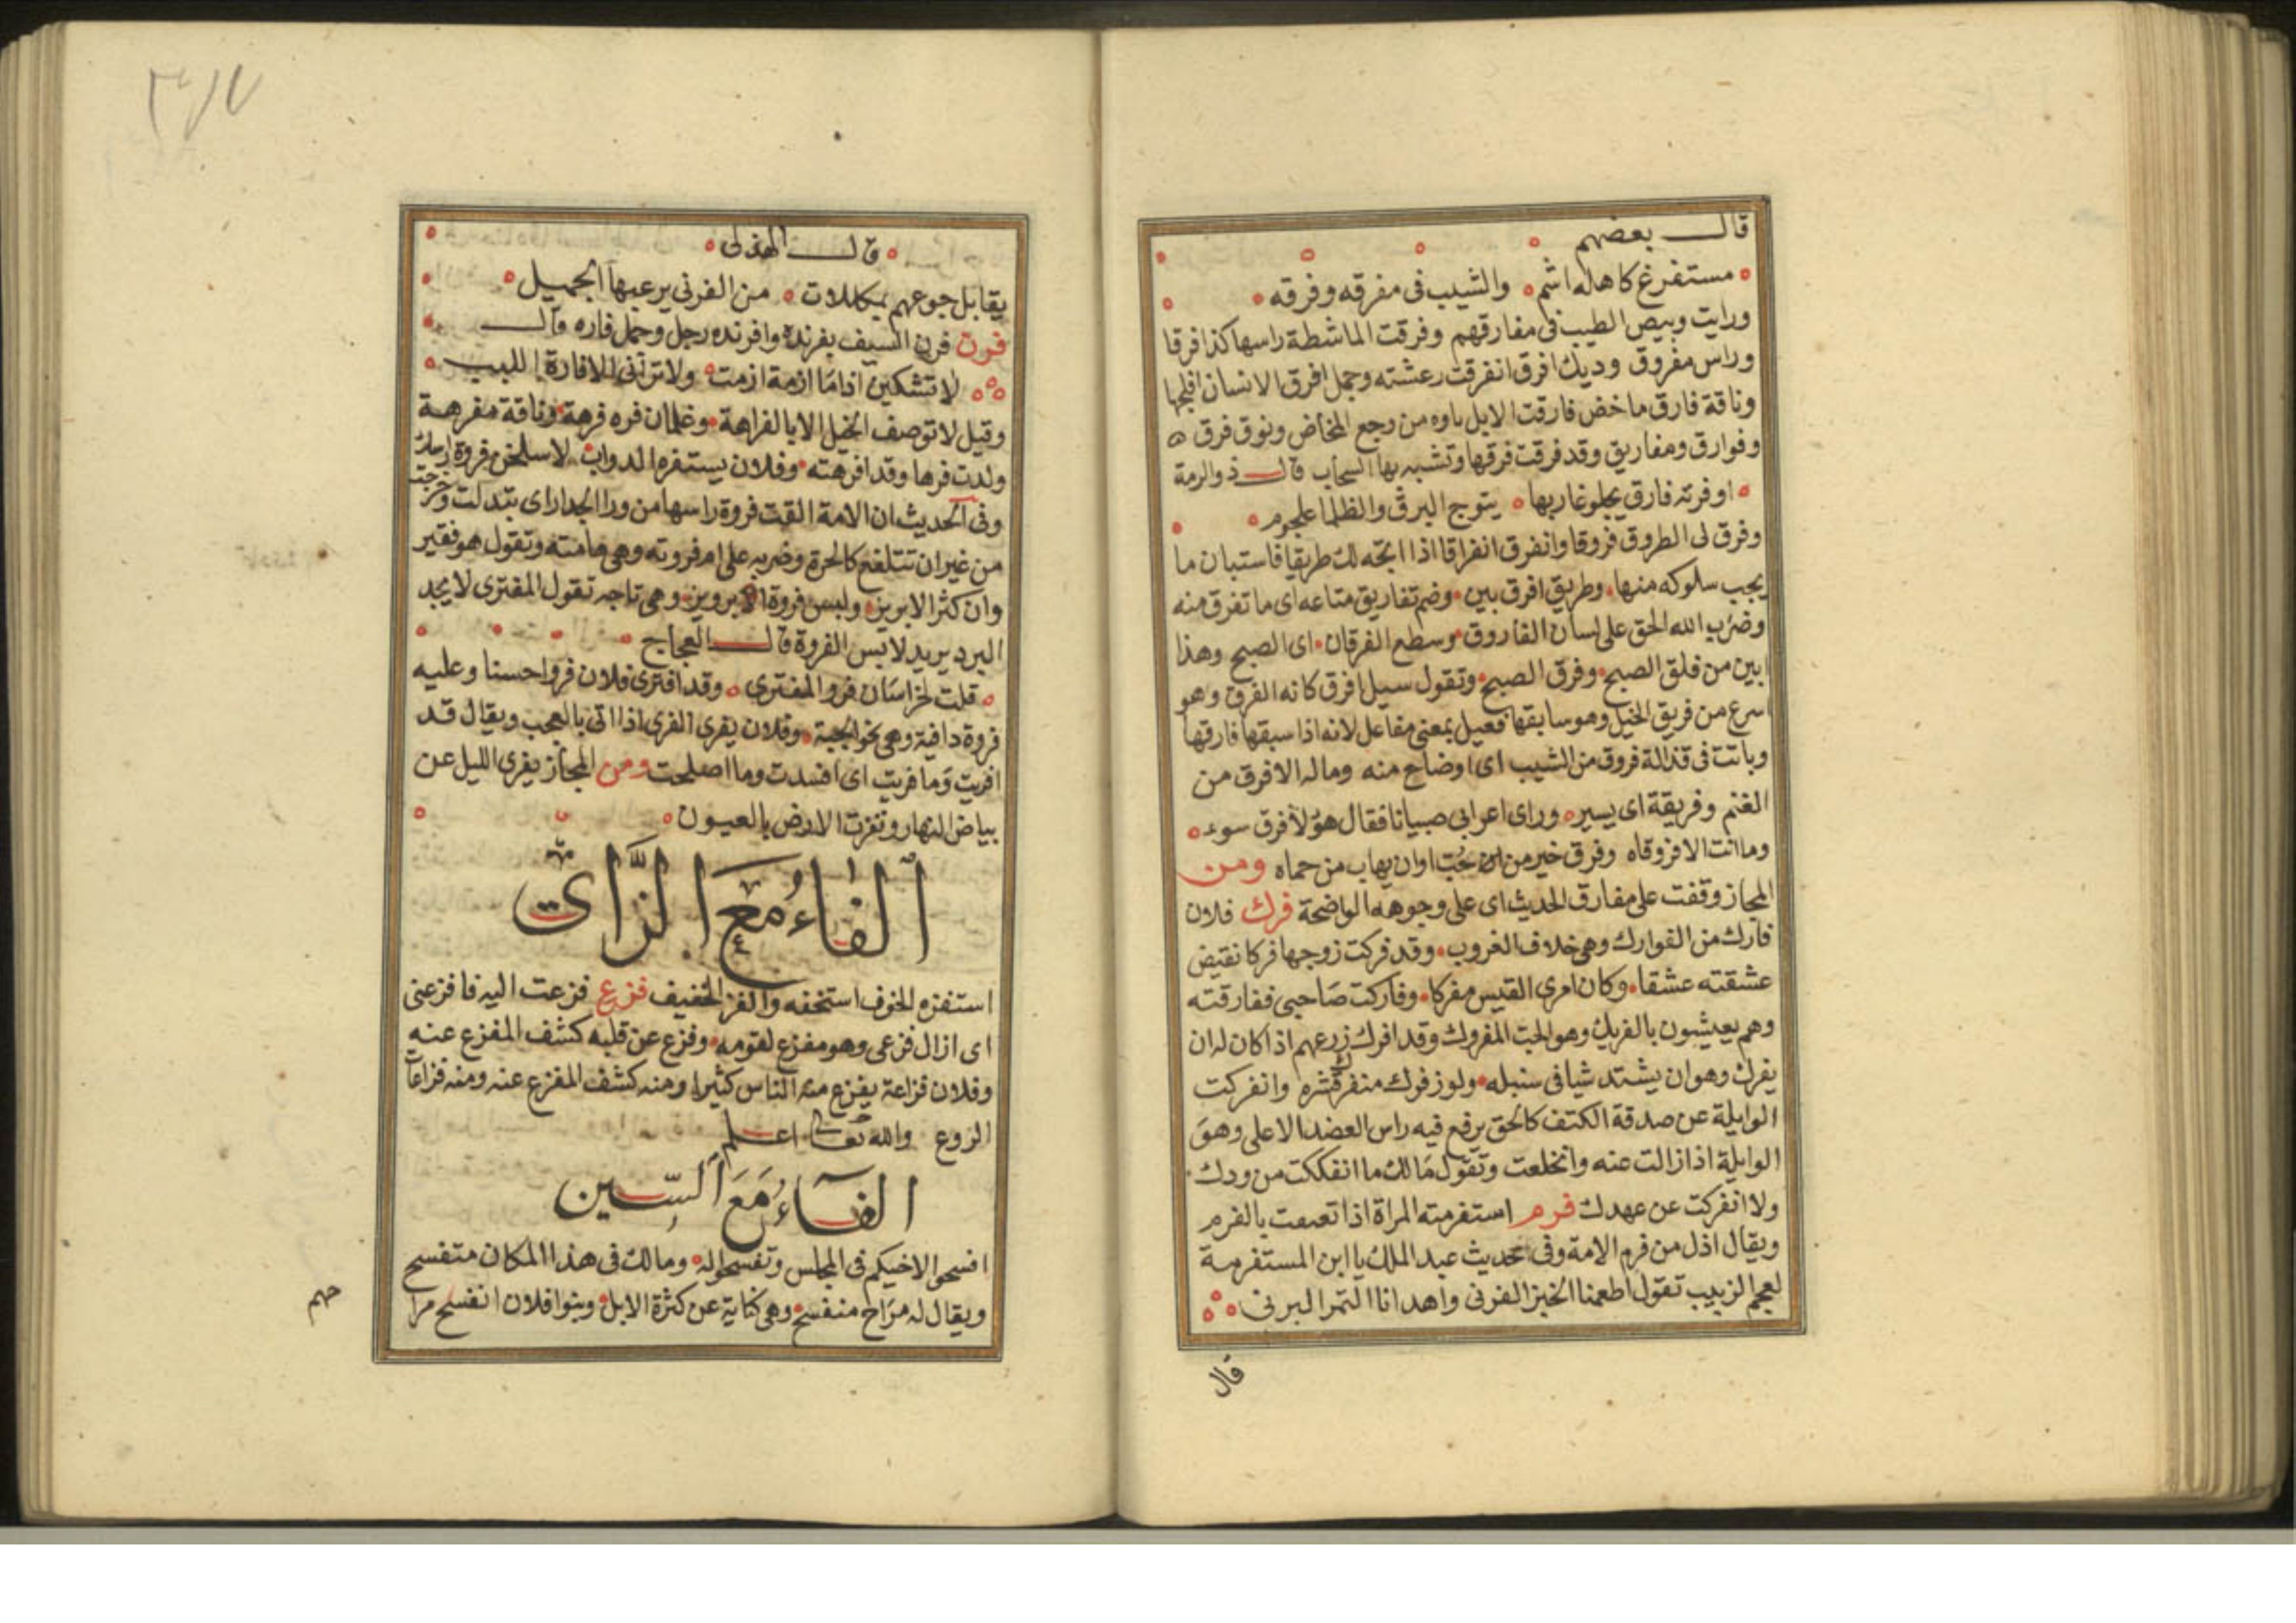 قال بعضهم
مستفرغ كاهله اشم والشيب فى مفرقه وفرقه
ورايت وبيص الطيب فى مفارقهم وفرقت الماشطة راسها كذا فرقا
وراس مفروق وديك افرق انفرقت رعشته وجمل افرق الانسان افلجها
وناقة فارق ماخض فارقت الابل باوه من وجع المخاض ونوق فرق
وفوارق ومفاريق وقد فرقت فرقها وتشبه بها السحاب قال ذو الرمة
او فرته فارق يجلو غاربها يتوج البرق والظلما علجوم
وفرق لى الطروق فروقا وانفرق انفراقا اذا اتجه لك طريقا فاستبان ما
يجب سلوكه منها وطريق افرق بين وضم تفاريق متاعه اى ما تفرق منه
وضرب الله الحق على لسان الفاروق وسطع الفرقان اى الصبح وهذا
ابين من فلق الصبح وفرق الصبح وتقول سبيل افرق كانه الفرق وهو
اسرع من فريق الخيل وهو سابقها فعيل بمعنى مفاعل لانه اذا سبقها فارقها
وباتت فى قذاله فروق من الشيب اى اوضاح منه وماله الا فرق من
الغنم وفريقة اى يسير وراى اعرابى صبيانا فقال هؤلا فرق سوء
وما انت الا فروقاه وفرق خير من حُبّ اوان يهاب من حماه ومن
المجاز وقفت على مفارق الحديث اى على وجوهه الواضحة فرك فلان
فارك من الفوارك وهى خلاف العروب وقد فركت زوجها فركا نقيض
عشقته عشقا وكان امرى القيس مفركا وفاركت صاحبى ففارقته
وهم يعيشون بالفريك وهو الحب المفروك وقد افرك زرعهم اذا كان له ان
يفرك وهو ان يشتد شيا فى سنبله ولوز فرك منفرك قشره وانفركت
الوابلة عن صدقة الكتف كالحق يرفع فيه راس العضد الاعلى وهو
الوابلة اذا زالت عنه وانخلعت وتقول مالك ما انفككت من ودك
ولا انفركت عن عهدك فرم استفرمته المراة اذا تعصت بالفرم
ويقال اذل من فرم الامة وفى حديث عبد الملك يا ابن المستفرمة
لعجم الزبيب تقول اطعمنا الخبز الفرنى واهدانا التمر البرنى
قال
٣١٧
قال الهذلى
يقابل جوعهم بمكللات من الفرنى يرعبها الجميل
فرن فرن السيف بفرنده وافرنده رجل وجمل فاره وقال
لا تشكين اذا ما ازمة ازمت ولا ترانى الا فارة اللبب
وقيل لا توصف الخيل الا بالفراهة وغلمان فره فرهة وناقة مفرهة
ولدت فرها وقد افرهته وفلان يستفره الدواب لاسلخن فروة راسك
وفى الحديث ان الامة القت فروة راسها من ورا الجدار اى تبدلت وخرجت
من غير ان تتلفع كالحرة وضربه على ام فروته وهى هامته وتقول هو فقير
وان كثر الابريز ولبس فروة ابرويز وهى تاجه تقول المفترى لا يجد
البرد يريد لابس الفروة قال العجاج
قلت لخراسان فرو المفترى وقد افترى فلان فروا حسنا وعليه
فروة دافية وهى نحو الجبة وفلان يفرى الفرى اذا اتى بالعجب ويقال قد
افريت وما فريت اى افسدت وما اصلحت ومن المجاز يفرى الليل عن
بياض النهار وتفرت الارض بالعيون
الفاء مع الزاى
استفزه الخوف استخفه والفز الخفيف فزع فزعت اليه فافزعنى
اى ازال فزعى وهو مفزع لقومه وفزع عن قلبه كشف المفزع عنه
وفلان فزاعة يفزع منه الناس كثيرا ومنه كشف المفزع عنه ومنه فزاعات
الزوع والله تعالى اعلم
الفاء مع السين
افسحوا لاخيكم فى المجلس وتفسحوا له وما لك فى هذا المكان متفسح
ويقال له مراح منفسح وهى كناية عن كثرة الابل وبنوا فلان انفسح مرا
حهم